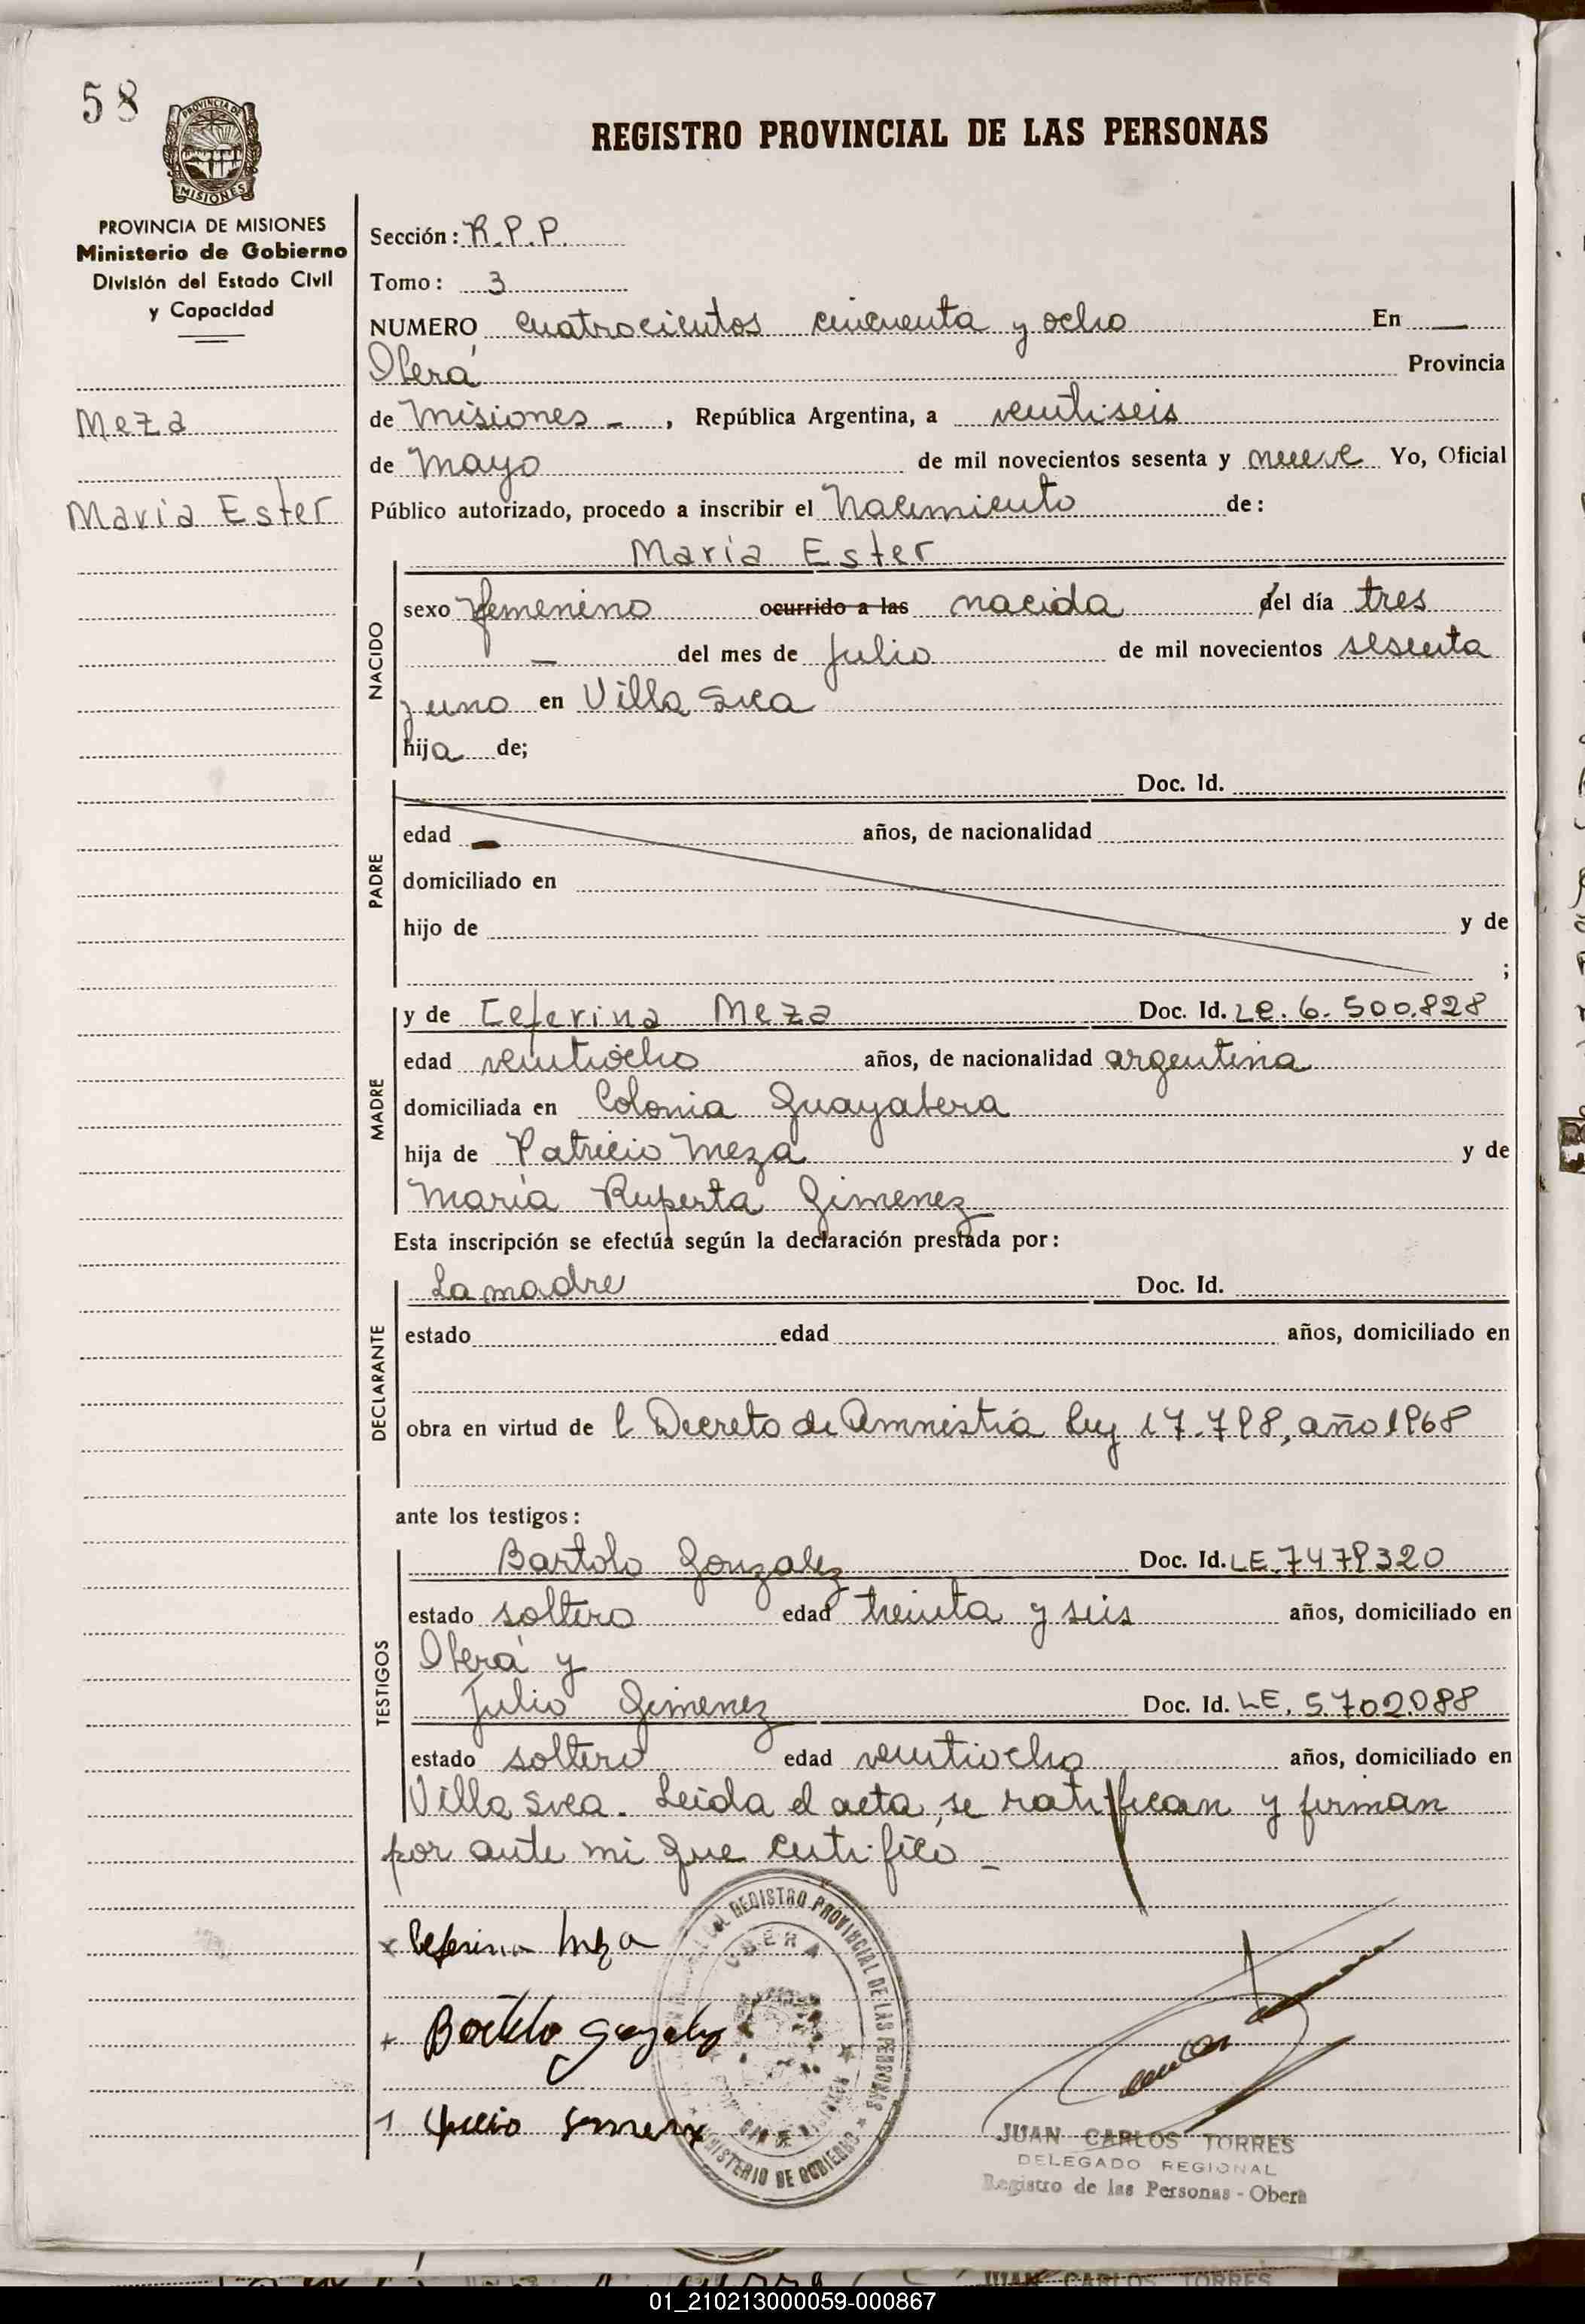 58
PROVINCIA DE
MISIONES
REGISTRO PROVINCIAL DE LAS PERSONAS
PROVINCIA DE MISIONES
Ministerio de Gobierno
División del Estado Civil
y Capacidad
Meza
María Ester
Sección: R.P.P.
Tomo: 3
NUMERO cuatrocientos cincuenta y ocho En —
Oberá Provincia
de Misiones - , República Argentina, a veintiseis
de Mayo de mil novecientos sesenta y nueve Yo, Oficial
Público autorizado, procedo a inscribir el Nacimiento de:
María Ester
NACIDO
sexo femenino ocurrido a las nacida del día tres
— del mes de Julio de mil novecientos sesenta
y uno en Villa Svea
hija de;
PADRE
Doc. Id.
edad — años, de nacionalidad
domiciliado en
hijo de y de
;
MADRE
y de Ceferina Meza Doc. Id. Le. 6.500.828
edad veintiocho años, de nacionalidad argentina
domiciliada en Colonia Guayabera
hija de Patricio Meza y de
María Ruperta Gimenez
Esta inscripción se efectúa según la declaración prestada por:
DECLARANTE
La madre Doc. Id.
estado edad años, domiciliado en
obra en virtud de l Decreto de Amnistía Ley 17.798, año 1968
ante los testigos:
TESTIGOS
Bartolo Gonzalez Doc. Id. LE.7479320
estado soltero edad treinta y seis años, domiciliado en
Oberá y
Julio Gimenez Doc. Id. LE. 5.702.088
estado soltero edad veintiocho años, domiciliado en
Villa Svea. Leida el acta, se ratifican y firman
por ante mi que certifico -
Ceferina Meza
Bartolo Gonzalez
Julio Gimenez
DEL REGISTRO PROVINCIAL DE LAS PERSONAS
OBERA
MINISTERIO DE GOBIERNO
JUAN CARLOS TORRES
DELEGADO REGIONAL
Registro de las Personas - Oberá
JUAN CARLOS TORRES
01_210213000059-000867